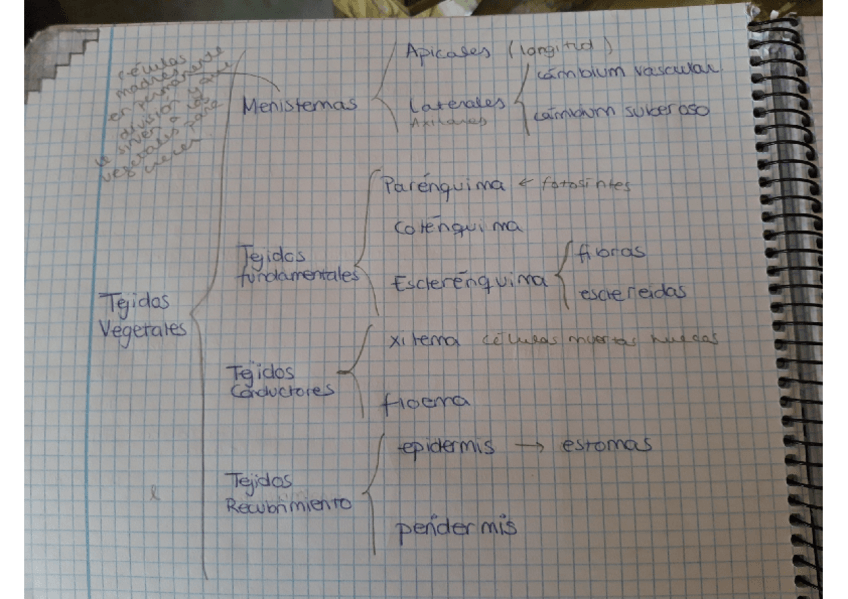 células
madres
en permanente
división y que
le sirven a los
vegetales para
crecer.
Meristemas
Apicales (longitud)
Laterales
Axilares
cámbium vascular
cámbium suberoso
Tejidos
Vegetales
Tejidos
fundamentales
Parénquima ← fotosintes
Colénquima
Esclerénquima
fibras
esclereidas
Tejidos
Conductores
xilema células muertas huecas
floema
Tejidos
Recubrimiento
epidermis → estomas
peridermis